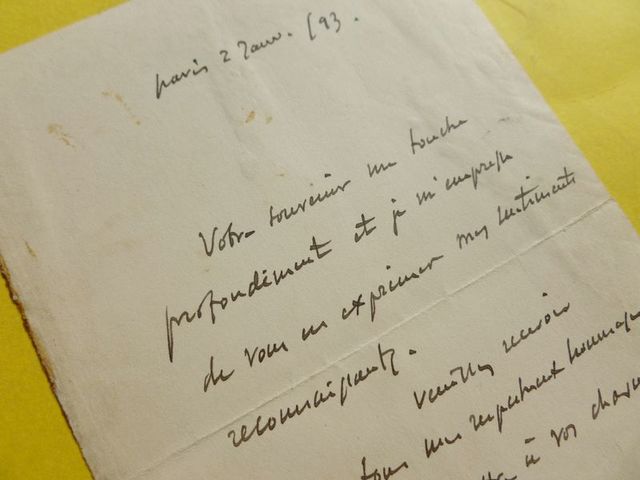 paris 2 Janv. 93.
Votre souvenir me touche
profondément et je m'empresse
de vous en exprimer mes sentiments
reconnaissants.
Veuillez recevoir
tous mes respectueux hommages
à vos